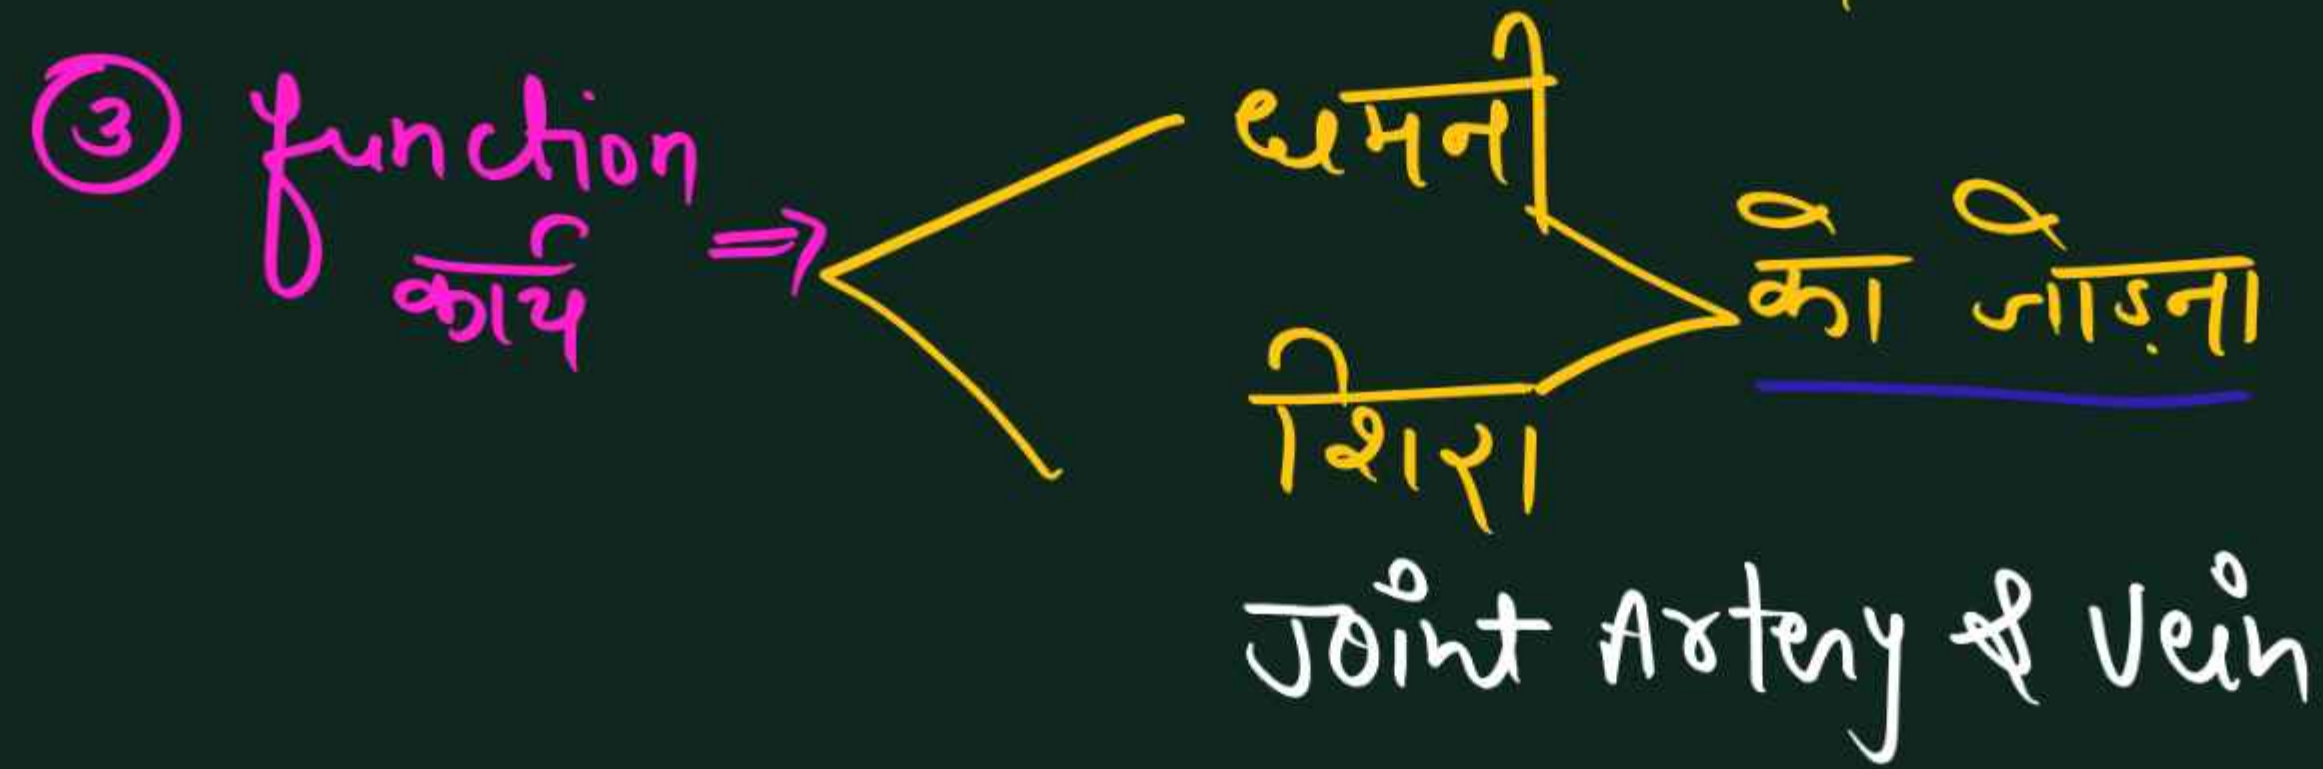 ③ function ⇒
कार्य
धमनी
को जोड़ना
शिरा
Joint Artery & Vein